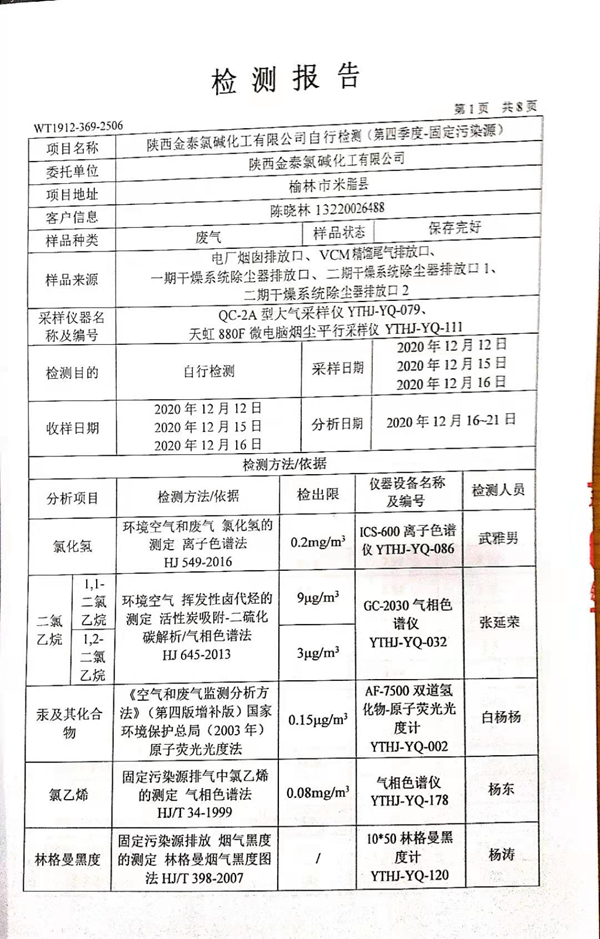 检测报告
第1页 共8页
WT1912-369-2506
项目名称 陕西金泰氯碱化工有限公司自行检测（第四季度-固定污染源）
委托单位 陕西金泰氯碱化工有限公司
项目地址 榆林市米脂县
客户信息 陈晓林 13220026488
样品种类 废气 样品状态 保存完好
样品来源 电厂烟囱排放口、VCM精馏尾气排放口、
一期干燥系统除尘器排放口、二期干燥系统除尘器排放口1、
二期干燥系统除尘器排放口2
采样仪器名
称及编号
QC-2A型大气采样仪 YTHJ-YQ-079、
天虹880F微电脑烟尘平行采样仪 YTHJ-YQ-111
检测目的 自行检测 采样日期
2020年12月12日
2020年12月15日
2020年12月16日
收样日期
2020年12月12日
2020年12月15日
2020年12月16日
分析日期 2020年12月16~21日
检测方法/依据
分析项目 检测方法/依据 检出限
仪器设备名称
及编号
检测人员
氯化氢
环境空气和废气 氯化氢的
测定 离子色谱法
HJ 549-2016
0.2mg/m³
ICS-600离子色谱
仪 YTHJ-YQ-086
武雅男
二氯
乙烷
1,1-
二氯
乙烷
1,2-
二氯
乙烷
环境空气 挥发性卤代烃的
测定 活性炭吸附-二硫化
碳解析/气相色谱法
HJ 645-2013
9μg/m³
3μg/m³
GC-2030气相色
谱仪
YTHJ-YQ-032
张延荣
汞及其化合
物
《空气和废气监测分析方
法》（第四版增补版）国家
环境保护总局（2003年）
原子荧光光度法
0.15μg/m³
AF-7500双道氢
化物-原子荧光光
度计
YTHJ-YQ-002
白杨杨
氯乙烯
固定污染源排气中氯乙烯
的测定 气相色谱法
HJ/T 34-1999
0.08mg/m³
气相色谱仪
YTHJ-YQ-178
杨东
林格曼黑度
固定污染源排放 烟气黑度
的测定 林格曼烟气黑度图
法 HJ/T 398-2007
/
10*50林格曼黑
度计
YTHJ-YQ-120
杨涛